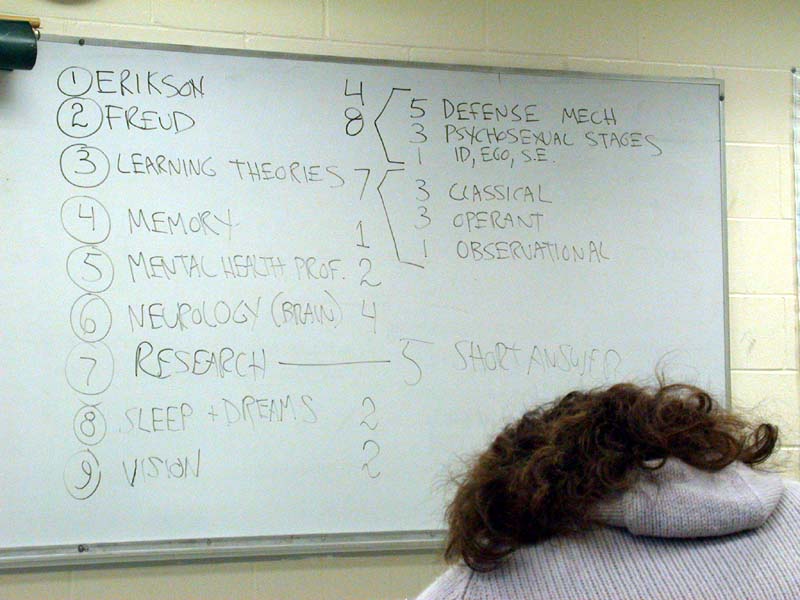 ① ERIKSON 4
② FREUD 8 5 DEFENSE MECH
3 PSYCHOSEXUAL STAGES
1 ID, EGO, S.E.
③ LEARNING THEORIES 7 3 CLASSICAL
3 OPERANT
1 OBSERVATIONAL
④ MEMORY 1
⑤ MENTAL HEALTH PROF. 2
⑥ NEUROLOGY (BRAIN) 4
⑦ RESEARCH — 5 SHORT ANSWER
⑧ SLEEP + DREAMS 2
⑨ VISION 2